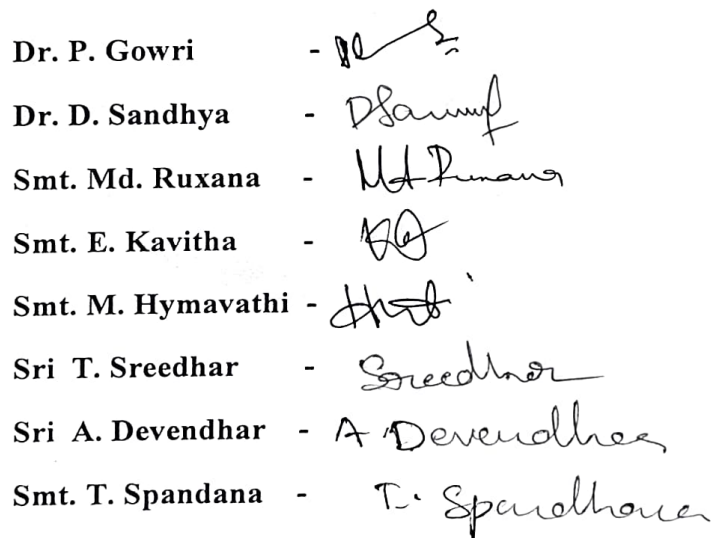 Dr. P. Gowri -
Dr. D. Sandhya - DSandhya
Smt. Md. Ruxana - Md Ruxana
Smt. E. Kavitha -
Smt. M. Hymavathi -
Sri T. Sreedhar - Sreedhar
Sri A. Devendhar - A Devendhar
Smt. T. Spandana - T. Spandhana